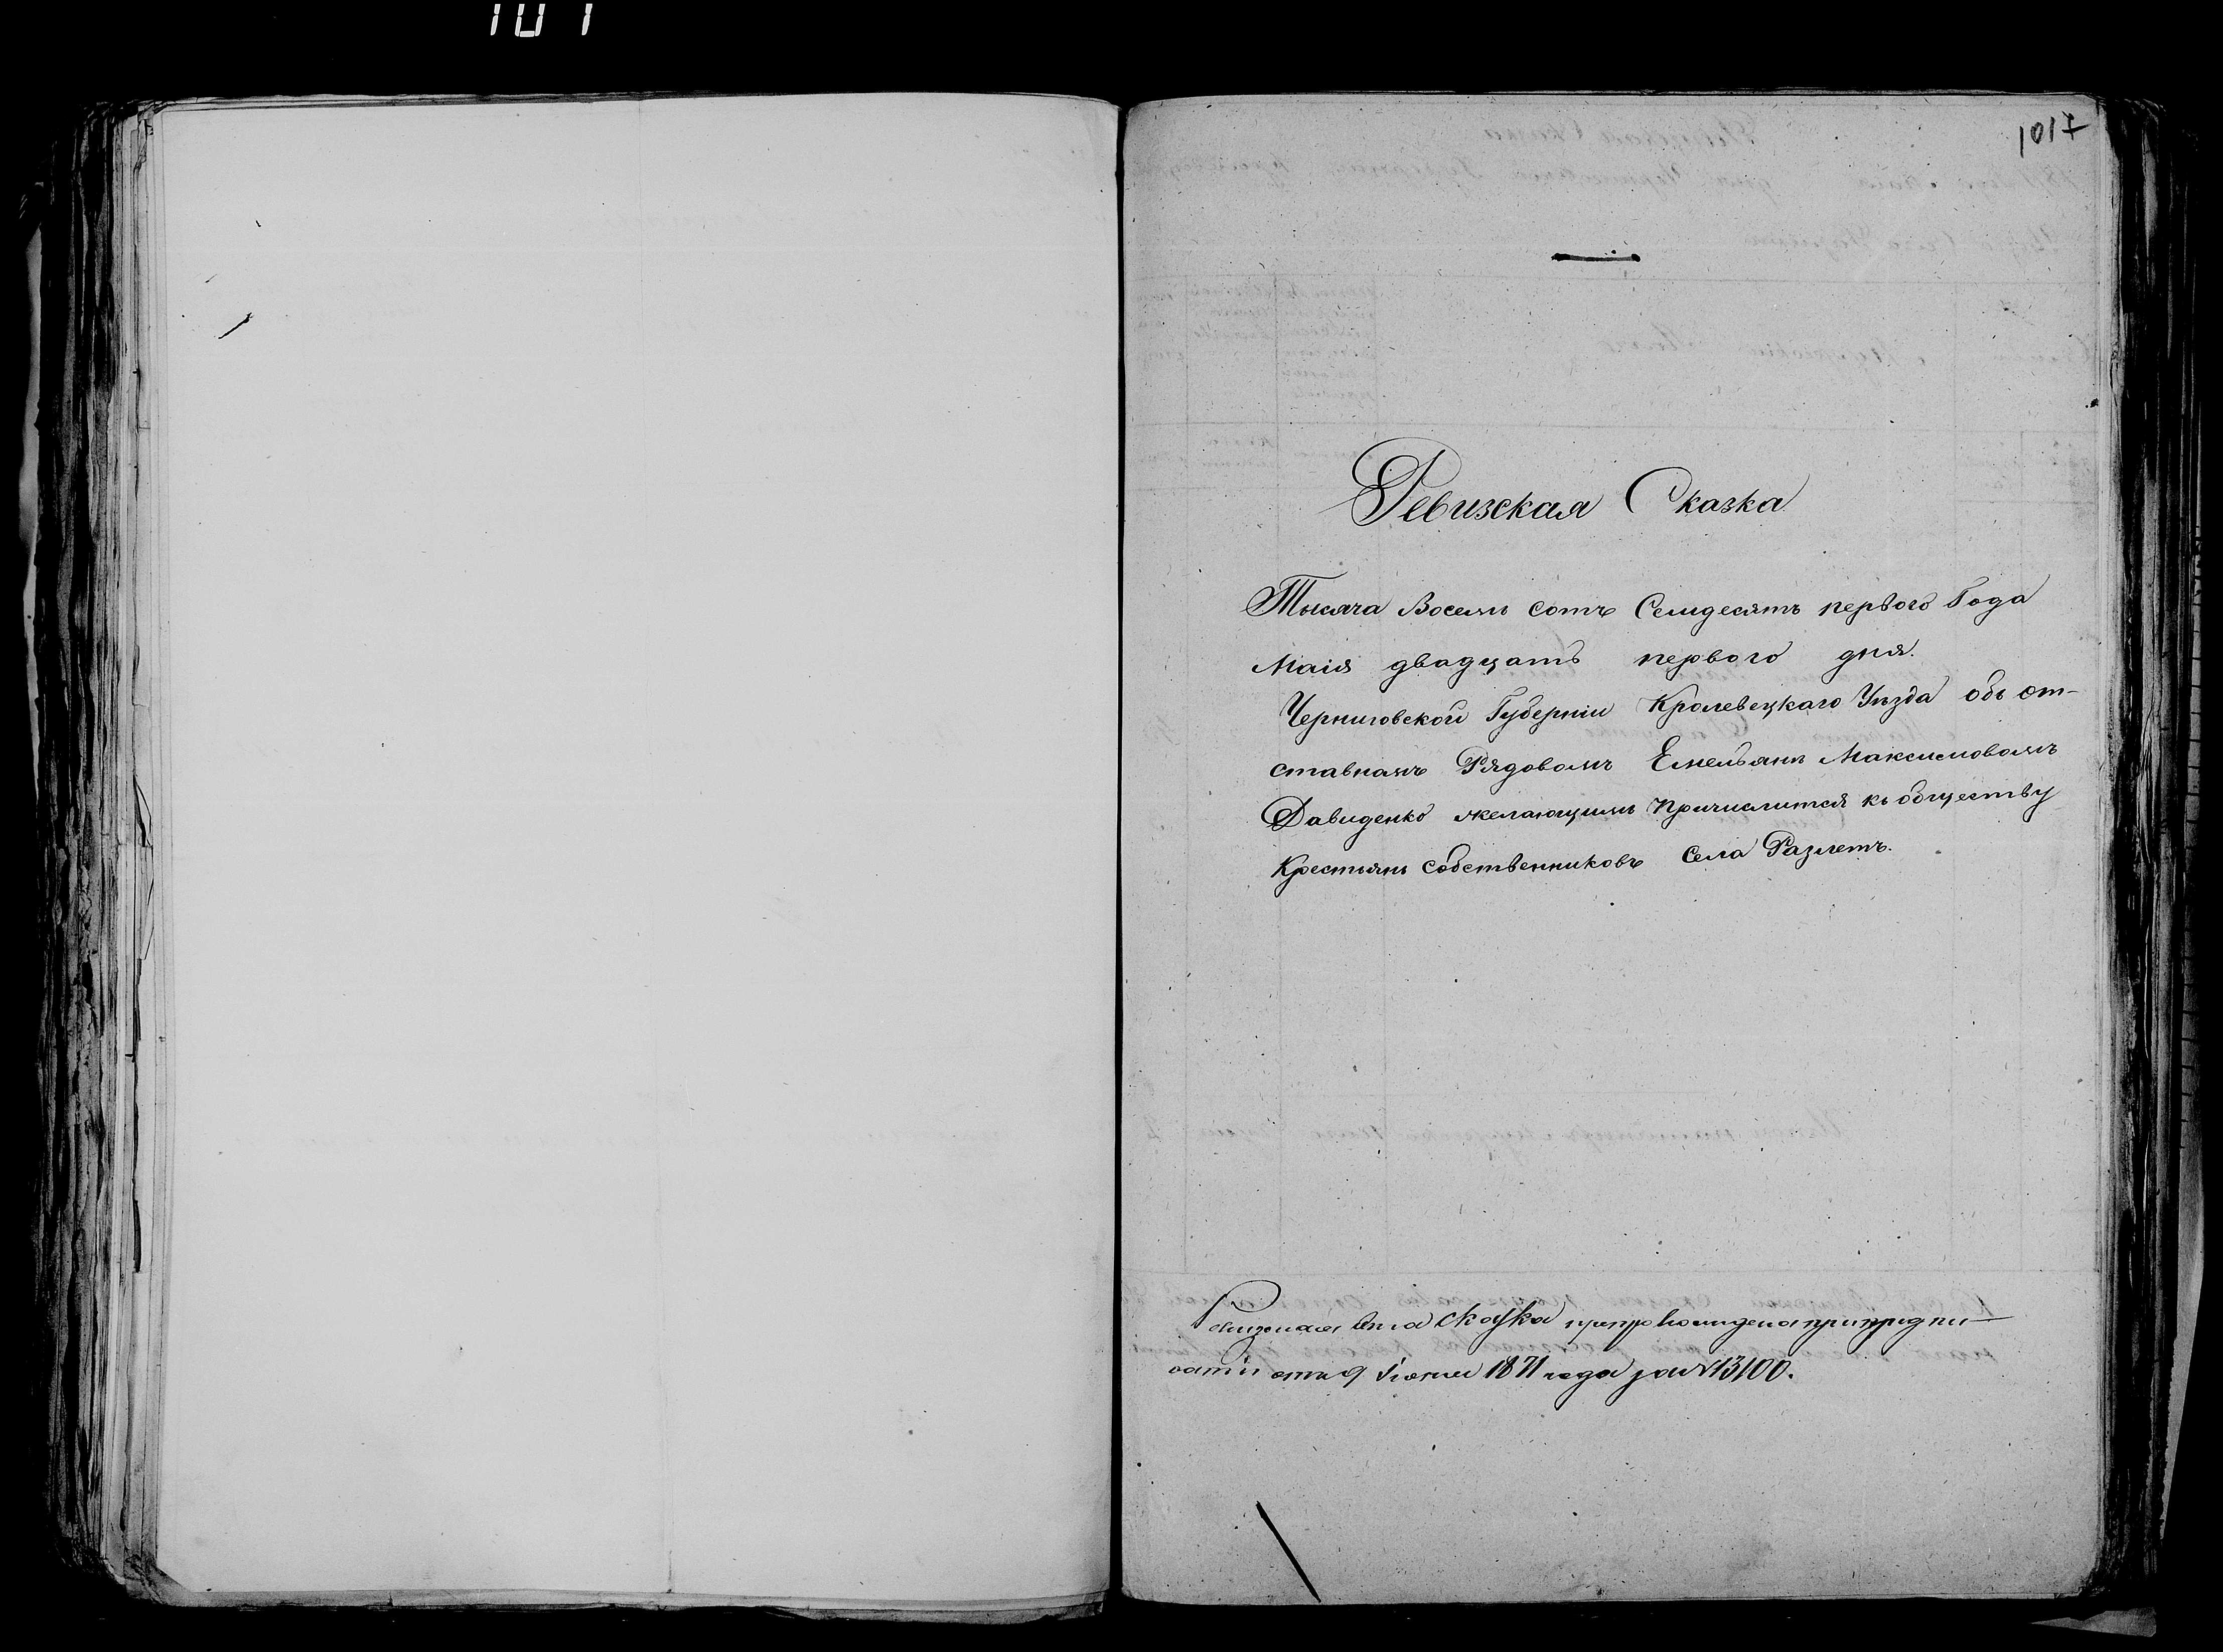 101
1017
Ревизская Сказка
Тысяча Восемь сотъ Семдесятъ первого Года
Маія двадцать первого дня.
Черниговской Губерніи Кролевецкаго Уѣзда объ от-
ставномъ Рядовомъ Емельянѣ Максимовомъ
Давиденко желающимъ причислится къ обществу
Крестьянъ собственниковъ села Разлетъ.
Ревизская сказка препровождена при предпи-
сатіи отъ 9 Іюня 1871 года за №13100.